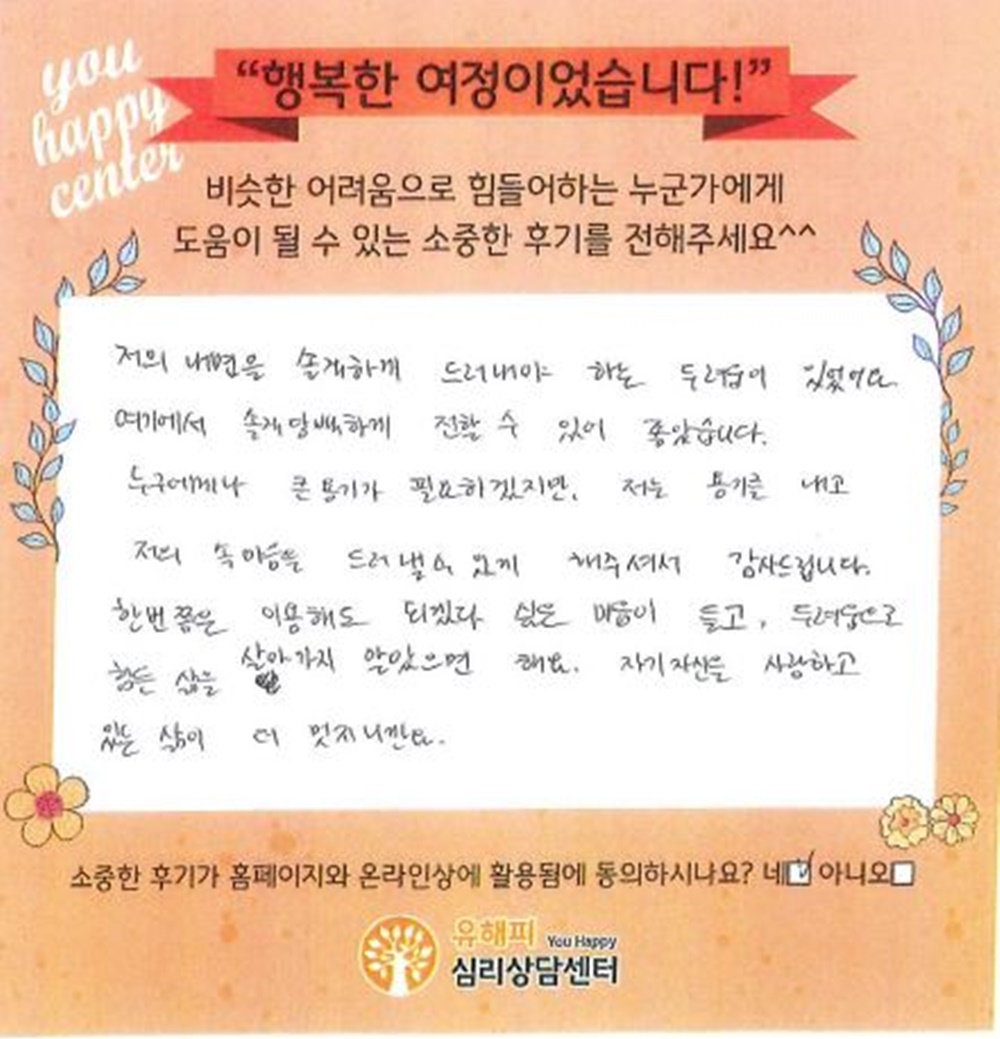 you
happy
center
“행복한 여정이었습니다!”
비슷한 어려움으로 힘들어하는 누군가에게
도움이 될 수 있는 소중한 후기를 전해주세요^^
저의 내면을 솔직하게 드러내야 하는 두려움이 있었어요.
여기에서 솔직담백하게 전할 수 있어 좋았습니다.
누구에게나 큰 용기가 필요하겠지만, 저는 용기를 내고
저의 속마음을 드러낼 수 있게 해주셔서 감사드립니다.
한번쯤은 이용해도 되겠다 싶은 마음이 들고, 두려움으로
힘든 삶을 살아가지 않았으면 해요. 자기자신을 사랑하고
있는 삶이 더 멋지니깐요.
소중한 후기가 홈페이지와 온라인상에 활용됨에 동의하시나요? 네☑ 아니오☐
유해피 You Happy
심리상담센터